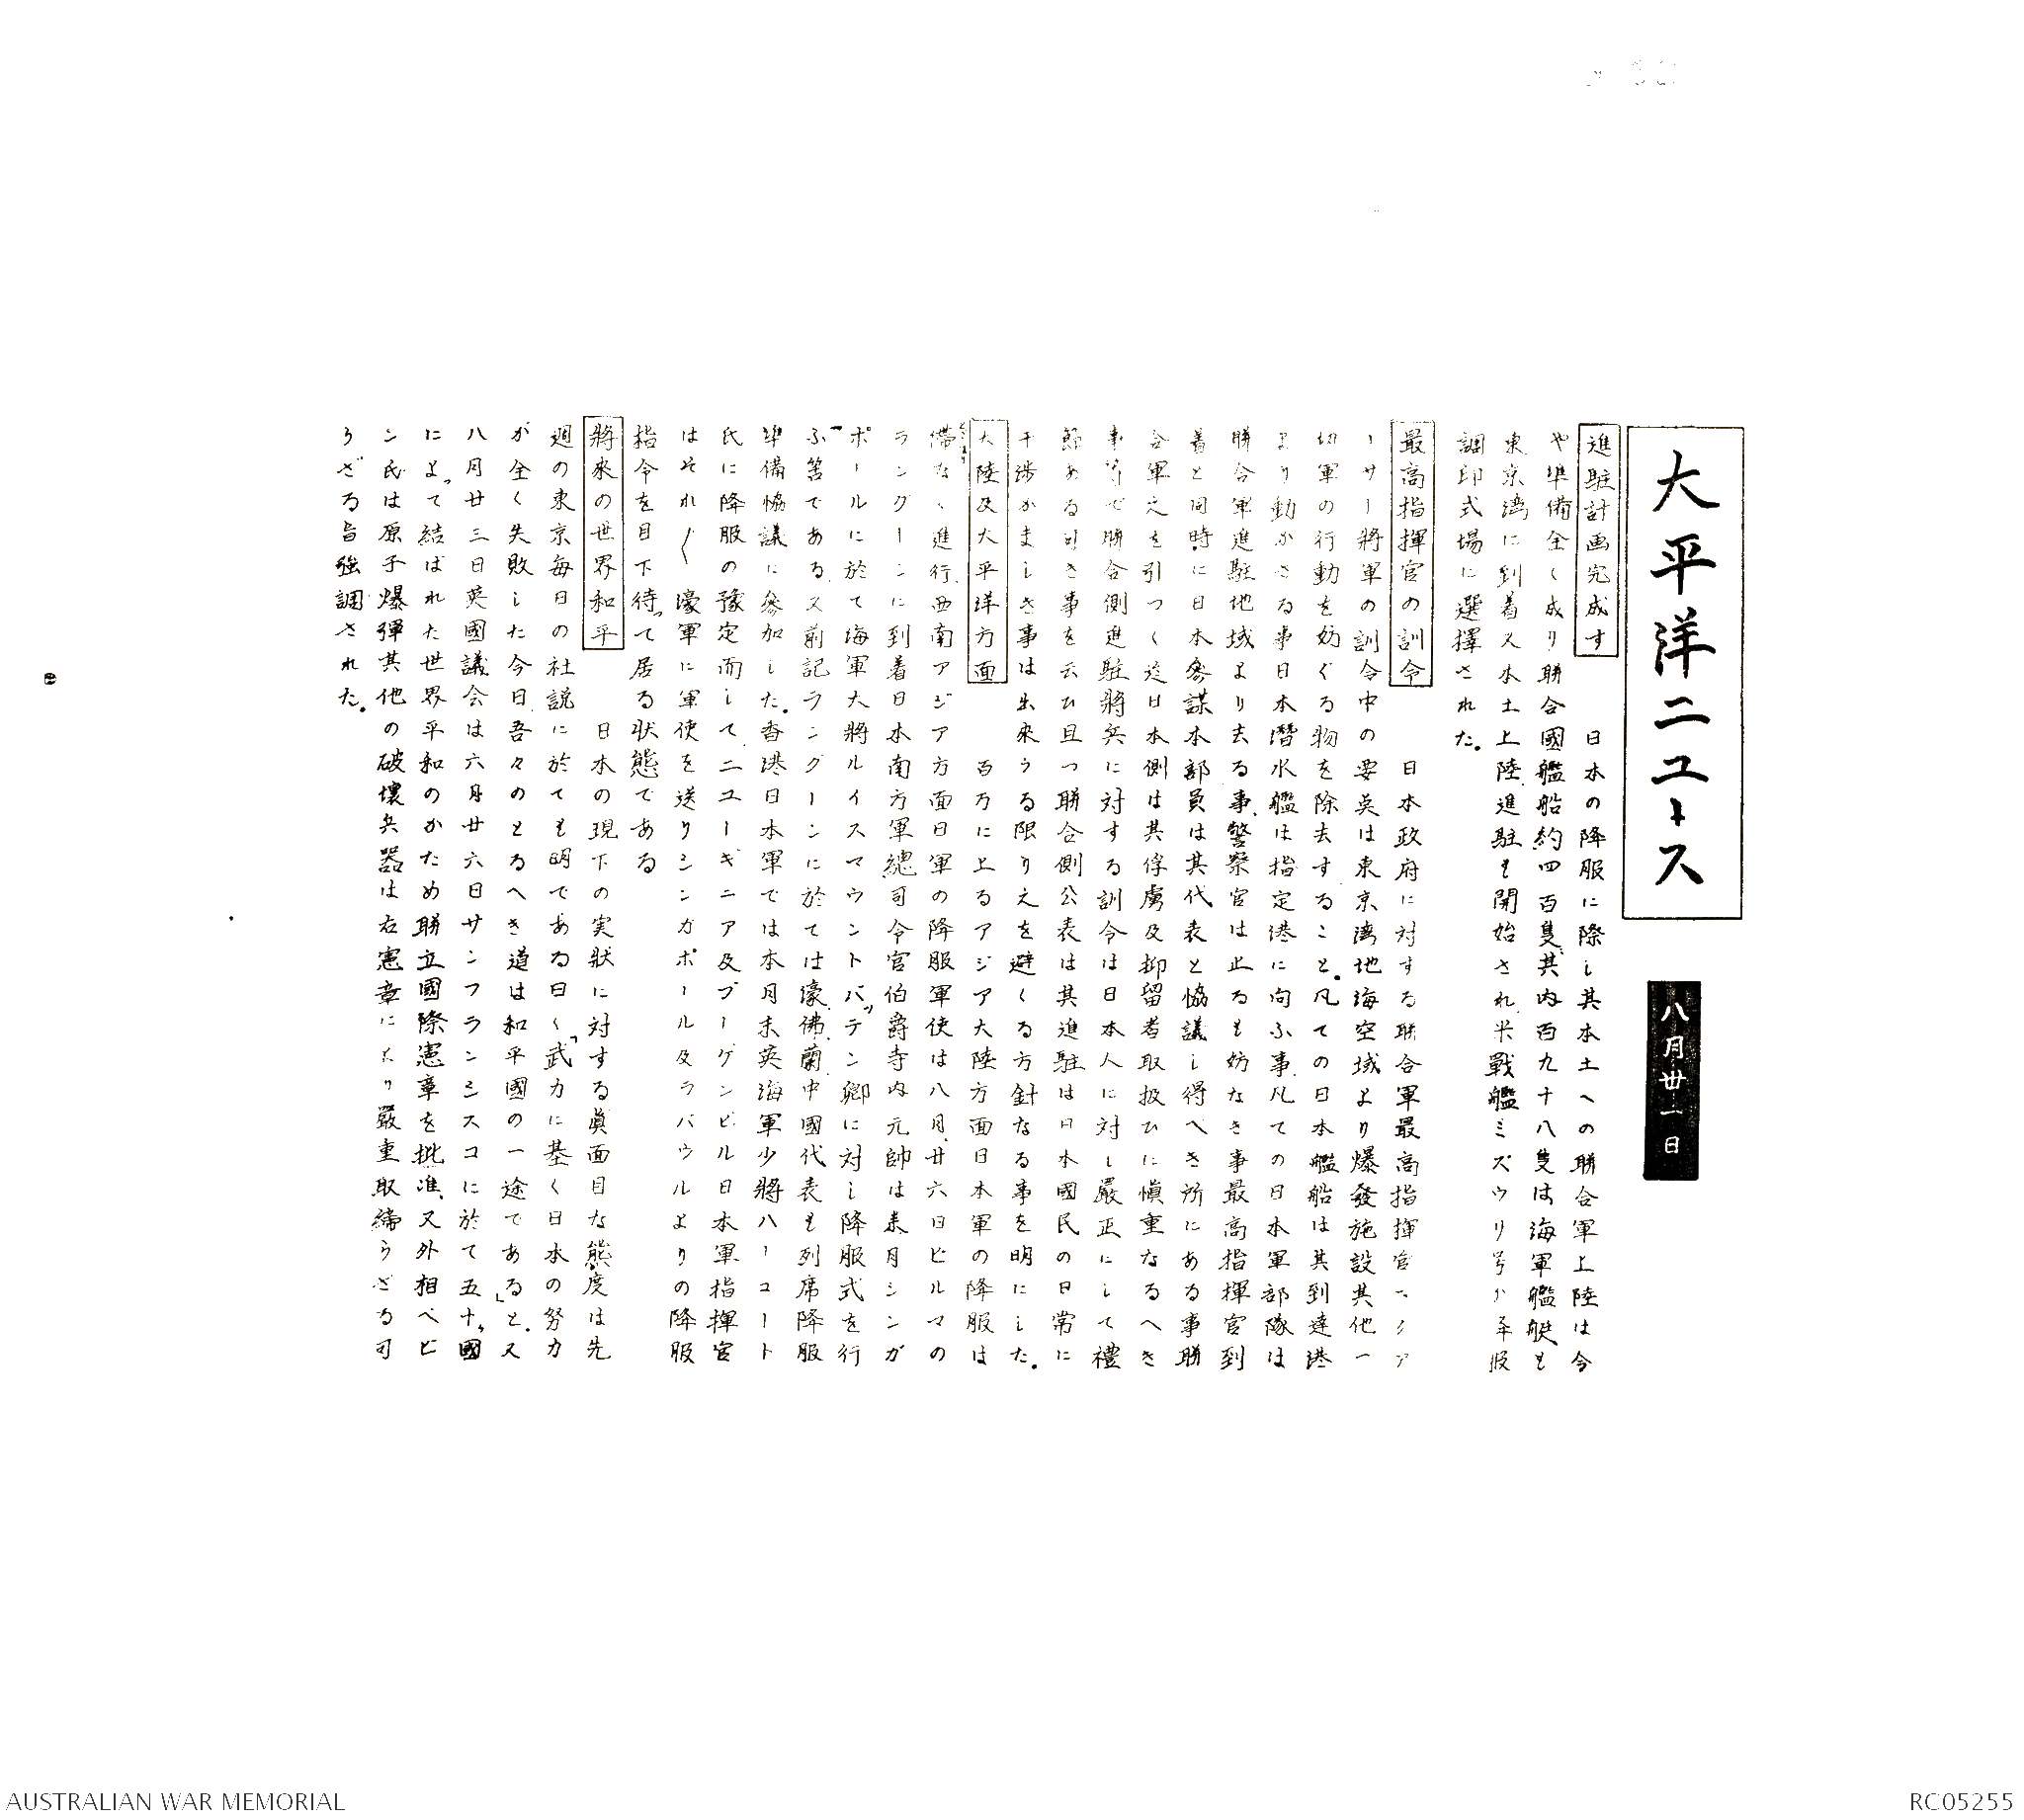 大平洋ニュース
八月丗一日
進駐計画完成す
日本の降服に際し其本土への聯合軍上陸は今
や準備全く成り聯合國艦船約四百隻、其内百九十八隻は海軍艦艇も
東京湾に到着又本土上陸、進駐も開始され、米戰艦ミズウリ号が降服
調印式場に選擇された。
最高指揮官の訓令
日本政府に対する聯合軍最高指揮官マクア
ーサー將軍の訓令中の要奌は東京湾地海空域より爆發施設其他一
切軍の行動を妨ぐる物を除去すること。凡ての日本艦船は其到達港
より動かさる事日本潛水艦は指定港に向ふ事、凡ての日本軍部隊は
聯合軍進駐地域より去る事、警察官は止るも妨なき事最高指揮官到
着と同時に日本參謀本部員は其代表と恊議し得へき所にある事聯
合軍之を引つく迄日本側は其俘虜及抑留者取扱ひに愼重なるへき
事等で聯合側進駐將兵に対する訓令は日本人に対し嚴正にして禮
節ある可き事を云ひ且つ聯合側公表は其進駐は日本國民の日常に
干渉がましき事は出來うる限り之を避くる方針なる事を明にした。
大陸及大平洋方面
百万に上るアジア大陸方面日本軍の降服は
滞なく進行、西南アジア方面日軍の降服軍使は八月廿六日ビルマの
ラングーンに到着日本南方軍總司令官伯爵寺内元帥は来月シンガ
ポールに於て海軍大將ルイスマウントバッテン卿に対し降服式を行
ふ筈である、又前記ラングーンに於ては濠、佛、蘭、中國代表も列席降服
準備恊議に參加した。香港日本軍では本月末英海軍少將ハーコート
氏に降服の豫定而して、ニューギニア及ブーゲンビル日本軍指揮官
はそれ〲濠軍に軍使を送りシンガポール及ラバウルよりの降服
指令を目下待って居る状態である
將來の世界和平
日本の現下の実狀に対する眞面目な態度は先
週の東京毎日の社説に於ても明である曰く「武力に基く日本の努力
が全く失敗した今日、吾々のとるへき道は和平國の一途である」と。又
八月廿三日英國議会は六月廿六日サンフランシスコに於て五十ヶ國
によって結ばれた世界平和のかため聯立國際憲章を批准、又外相ベビ
ン氏は原子爆彈其他の破壊兵器は右憲章により嚴重取締らざる可
らざる旨強調された。
AUSTRALIAN WAR MEMORIAL
RC05255